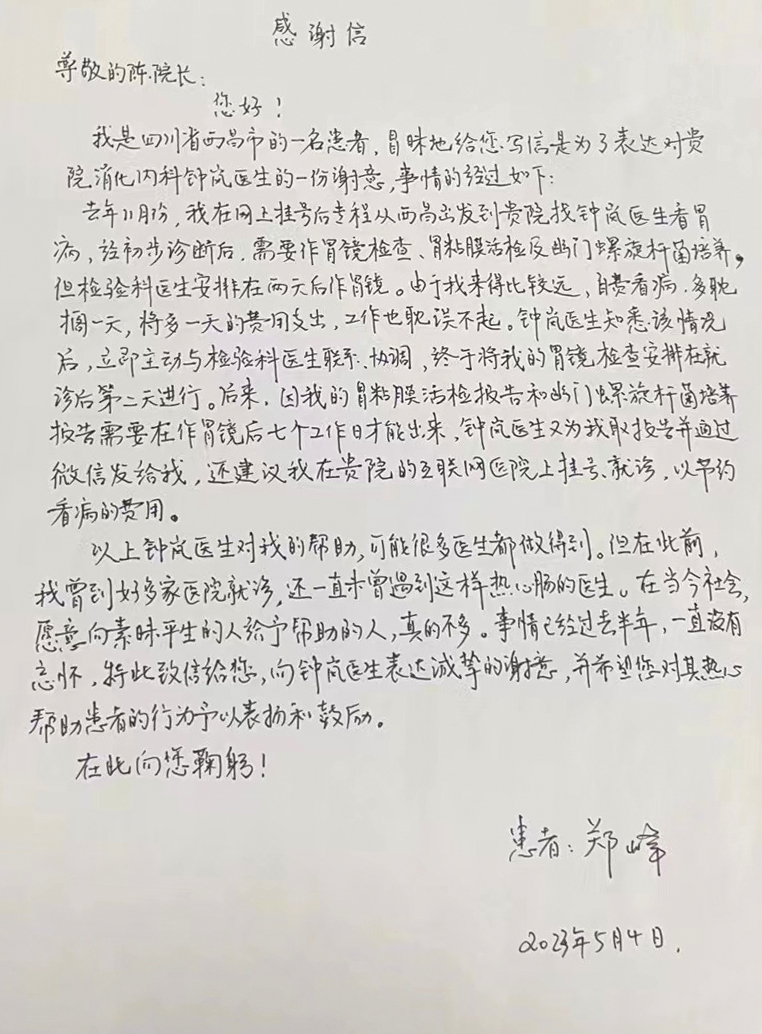 感谢信
尊敬的陈院长：
您好！
我是四川省西昌市的一名患者，冒昧地给您写信是为了表达对贵
院消化内科钟岚医生的一份谢意，事情的经过如下：
去年11月份，我在网上挂号后专程从西昌出发到贵院找钟岚医生看胃
病，经初步诊断后，需要作胃镜检查、胃粘膜活检及幽门螺旋杆菌培养，
但检验科医生安排在两天后作胃镜。由于我来得比较远，自费看病，多耽
搁一天，将多一天的费用支出，工作也耽误不起。钟岚医生知悉该情况
后，立即主动与检验科医生联系、协调，终于将我的胃镜检查安排在就
诊后第二天进行。后来，因我的胃粘膜活检报告和幽门螺旋杆菌培养
报告需要在作胃镜后七个工作日才能出来，钟岚医生又为我取报告并通过
微信发给我，还建议我在贵院的互联网医院上挂号、就诊，以节约
看病的费用。
以上钟岚医生对我的帮助，可能很多医生都做得到。但在此前，
我曾到好多家医院就诊，还一直未曾遇到这样热心肠的医生。在当今社会，
愿意向素昧平生的人给予帮助的人，真的不多。事情已经过去半年，一直没有
忘怀，特此致信给您，向钟岚医生表达诚挚的谢意，并希望您对其热心
帮助患者的行为予以表扬和鼓励。
在此向您鞠躬！
患者：郑峰
2023年5月4日.